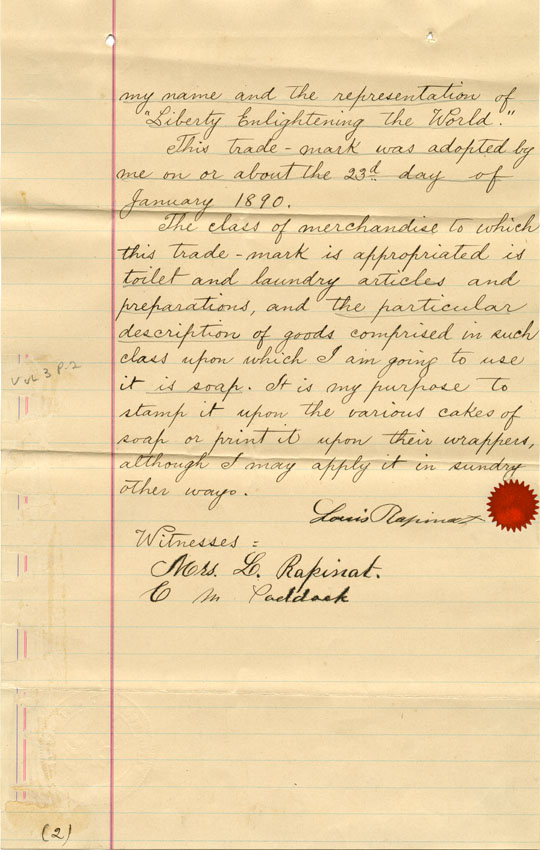 my name and the representation of
"Liberty Enlightening the World."
This trade-mark was adopted by
me on or about the 23d day of
January 1890.
The class of merchandise to which
this trade-mark is appropriated is
toilet and laundry articles and
preparations, and the particular
description of goods comprised in such
class upon which I am going to use
it is soap. It is my purpose to
stamp it upon the various cakes of
soap or print it upon their wrappers,
although I may apply it in sundry
other ways.
Louis Rapinat
Witnesses =
Mrs. L. Rapinat.
E M Paddock
Vol 3 P. 2
(2)